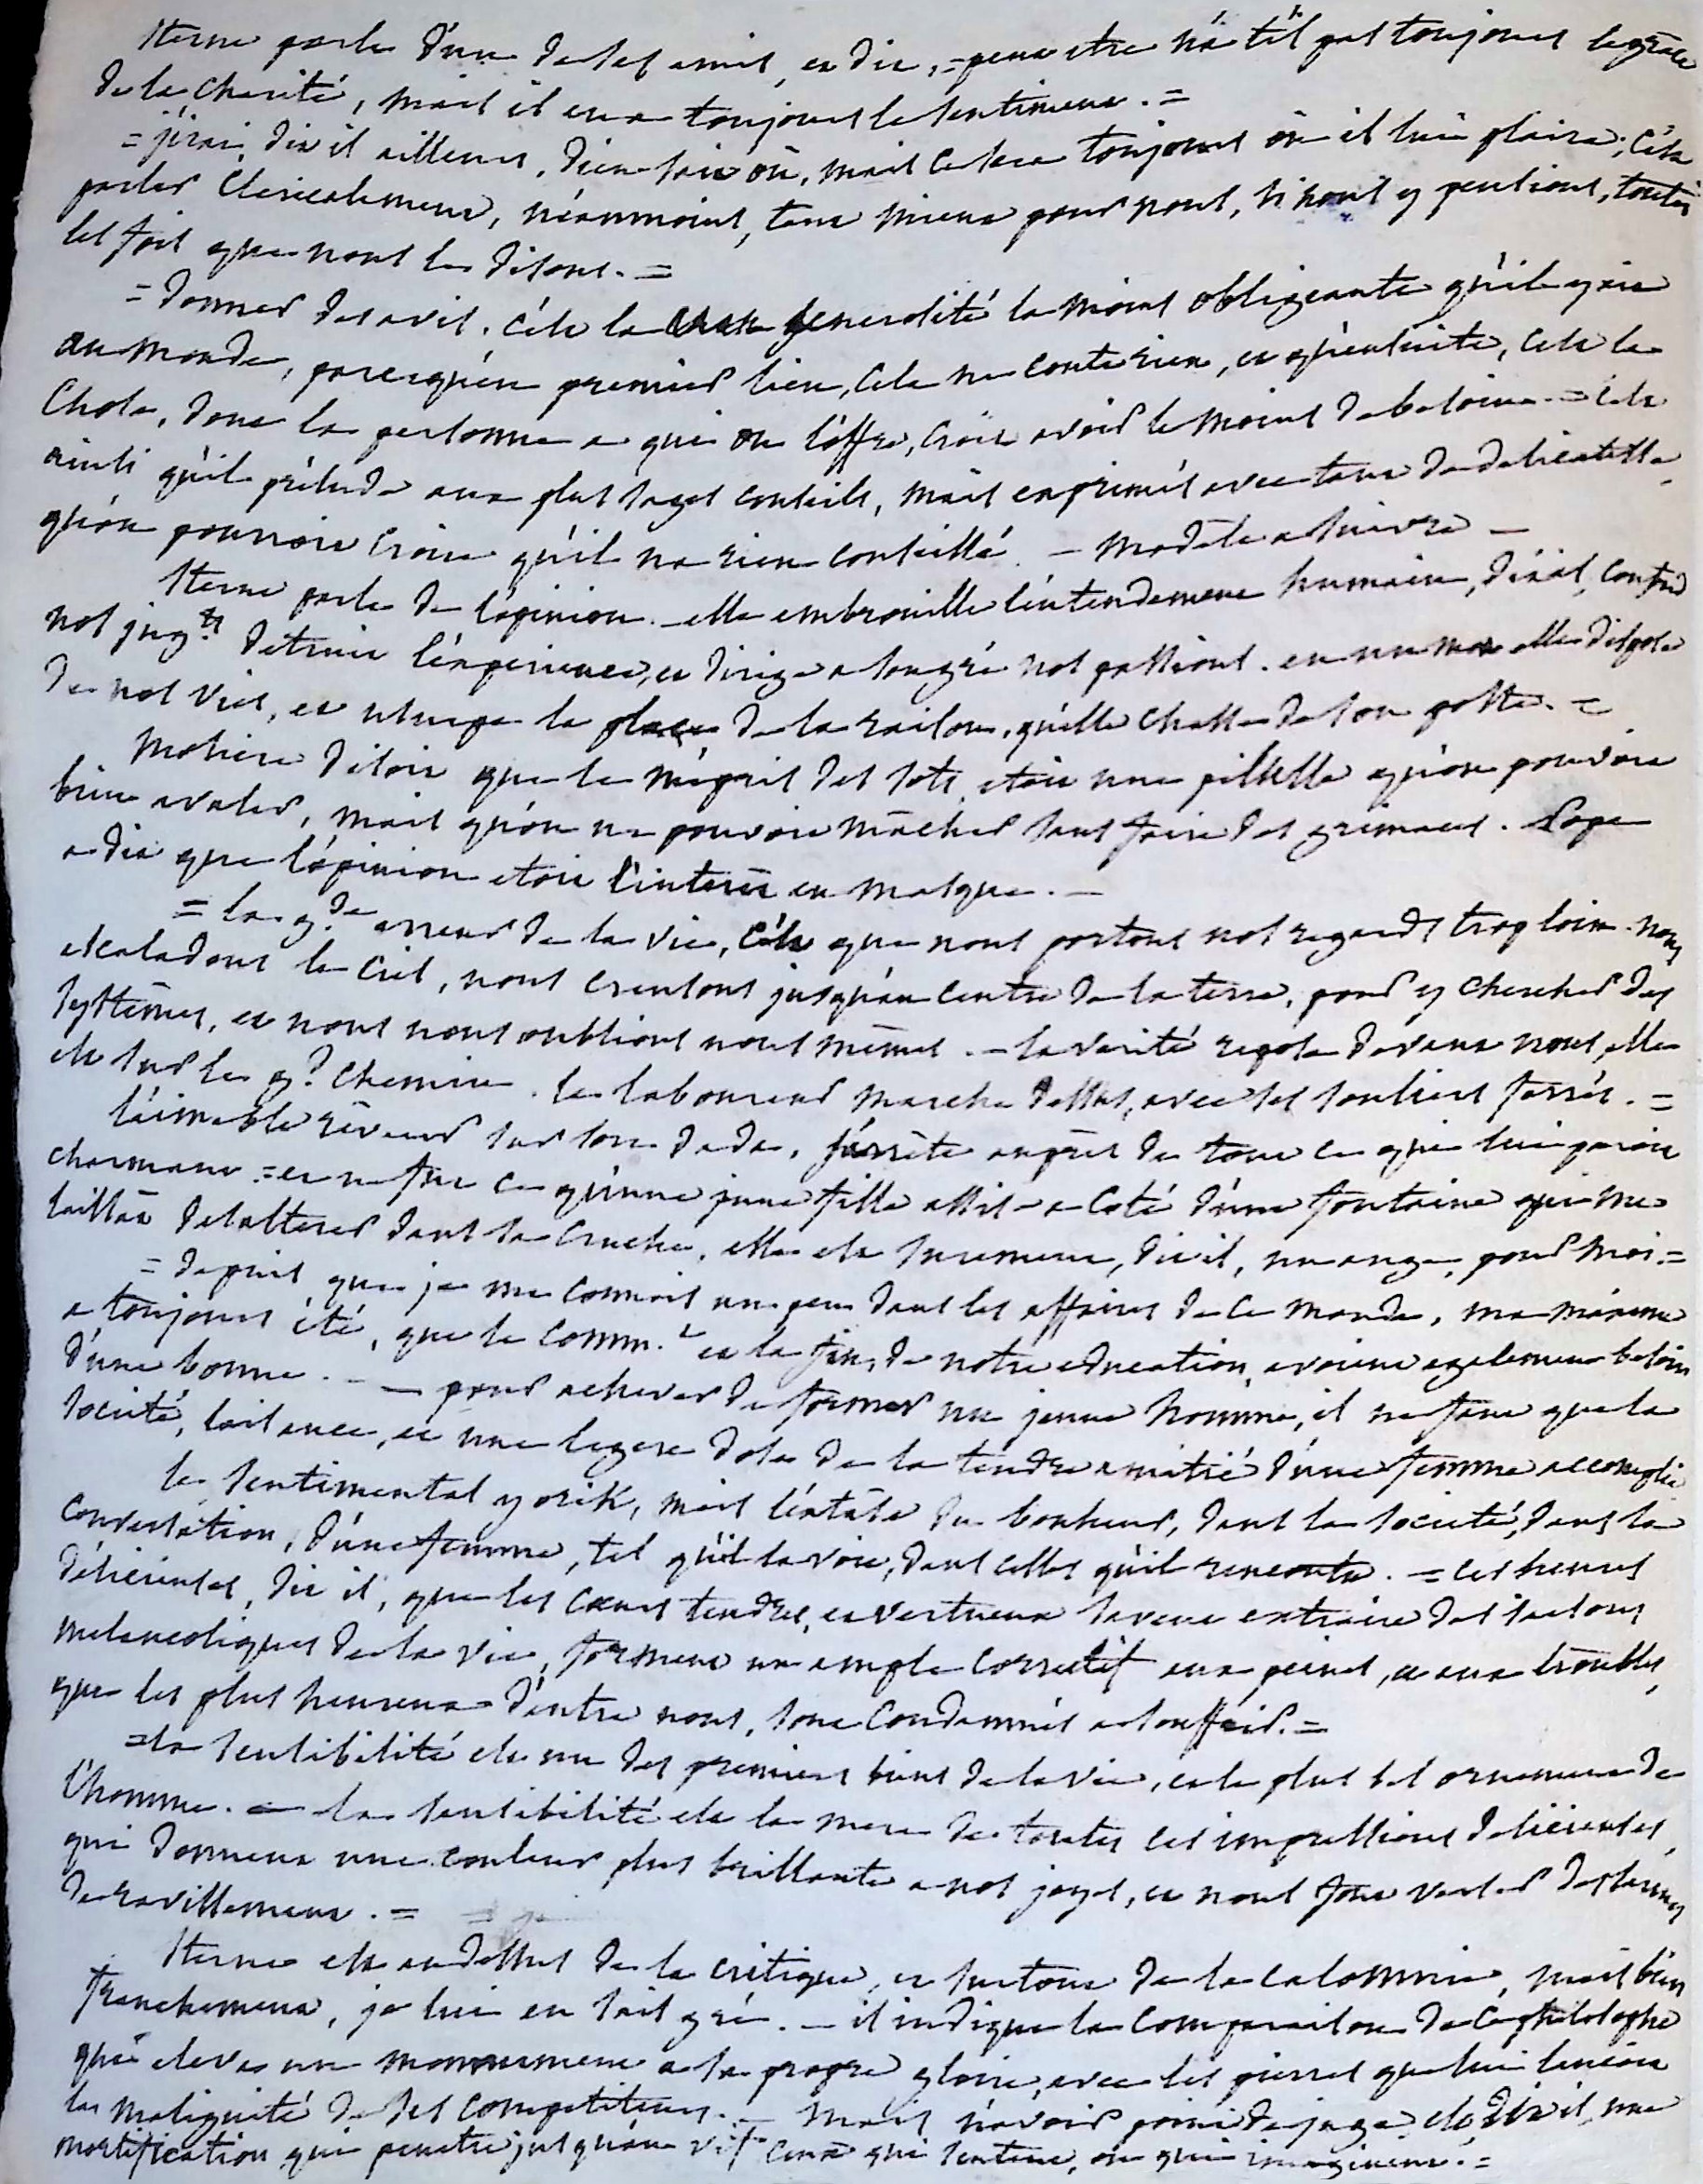 Sterne parle d'un de ses amis, et dit, = peut etre n'a t'il pas toujours la grace
de la charité, mais il en a toujours le sentiment. =
= j'irai, dit il ailleurs, dieu sait où, mais ce sera toujours où il lui plaira; c'est
parler clericalement, néanmoins, tant mieux pour nous, si nous y pensions, toutes
les fois que nous le disons. =
= donner des avis. c'est la generosité la moins obligeante qu'il y ait
au monde, parcequ'en premier lieu, cela ne coute rien, et qu'ensuite, c'est la
chose, dont la personne a qui on l'offre, croit avoir le moins de besoin. = c'est
ainsi qu'il prélude aux plus sages conseils, mais exprimés avec tant de delicatesse,
qu'on pourroit croire qu'il na rien conseillé. - modele a suivre -
Sterne parle de l'opinion. - elle embrouille l'entendement humain, dit il, confond
nos jug.ts détruit l'experience, et dirige a son gré nos passions. en un mot elle dispose
de nos vies, et usurpe la place de la raison, qu'elle chasse de son poste. =
Moliere disoit que le mépris des sots, etoit une pillulle qu'on pouvoit
bien avaler, mais qu'on ne pouvoit mâcher sans faire des grimaces. Pope
a dit que l'opinion etoit l'interêt en masque. -
= la g.de erreur de la vie, c'est que nous portons nos regards trop loin. nous
escaladons le ciel, nous creusons jusqu'au centre de la terre, pour y chercher des
systêmes, et nous nous oublions nous mêmes. - la verité repose devant nous, elle
est sur le g.d chemin. le laboureur marche dessus, avec ses souliers ferrés. =
l'aimable rêveur sur son dada, s'arrête auprès de tout ce qui lui paroit
charmant. = et ne fut ce qu'une jeune fille assise a coté d'une fontaine qui me
laissât desalterer dans sa cruche, elle est surement, dit il, un ange pour moi. =
= depuis que je me connois un peu dans les affaires de ce monde, ma maxime
a toujours été, que le comm.t et la fin, de notre education, avoient egalement besoin
d'une bonne. - - pour achever de former un jeune homme, il ne faut que la
societé, l'aisance, et une legere dose de la tendre amitié d'une femme accomplie
le sentimental yorik, met l'extase du bonheur, dans la societé, dans la
conversation, d'une femme, tel qu'il la voit, dans celles qu'il rencontre. = ces heures
délicieuses, dit il, que les cœurs tendres, et vertueux savent extraire des saisons
melancoliques de la vie, forment un ample correctif aux peines, et aux troubles,
que les plus heureux d'entre nous, sont condamnés a souffrir. =
= la sensibilité est un des premiers biens de la vie, et le plus bel ornement de
l'homme. = la sensibilité est la mere de toutes ces impressions delicieuses
qui donnent une couleur plus brillante a nos joyes, et nous font verser des larmes
de ravissement. =
Sterne est au dessus de la critique, et surtout de la calomnie, mais bien
franchement, je lui en sais gré. - il indique la comparaison de ce philosophe
qui eleva un monument a sa propre gloire, avec les pierres que lui lancoit
la malignité de ses competiteurs. - mais n'avoir point de juge, est, dit il, une
mortification qui penetre jusqu'au vif ceux qui sentent, ou qui imaginent. =